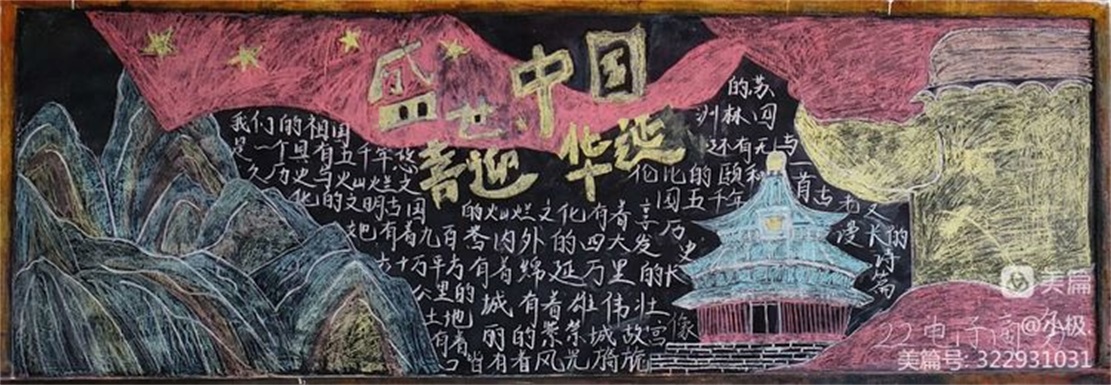 盛世中国
喜迎华诞
我们的祖国
是一个具有五千年悠
久历史与火山烂文
化的文明古国
她有着九百
六十万平方
公里的
土地
有着
的火山烂文化有着享
誉内外的四大发
有着绵延万里的长
城有着雄伟壮
丽的紫禁城故宫
有着风光旖旎
的苏
洲林园
还有无与
伦比的颐和
国五千年
历史
像一首古老又
漫长的
诗篇
22电子商务
美篇
@小极
美篇号: 322931031